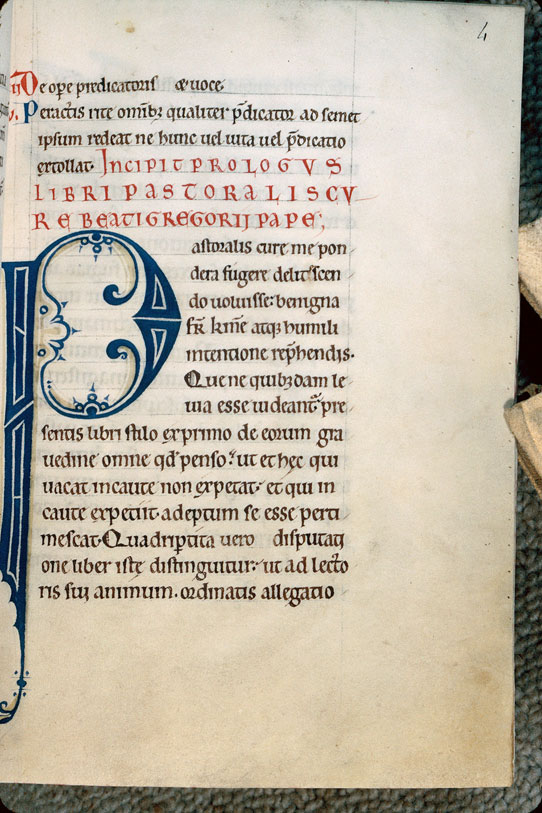 4
De ope predicatoris & uoce.
Peractis rite omnibꝫ qualiter p̄dicator ad semet
ipsum redeat ne hunc uel uita uel p̄dicatio
extollat. INCIPIT PROLOGVS
LIBRI PASTORALIS CV
RE BEATI GREGORII PAPE;
Pastoralis cure me pon
dera fugere delitescen
do uoluisse: benigna
fr̄ km̄e atqꝫ humili
intentione rep̄hendis.
Que ne quibꝫdam le
uia esse uideant᷑ pre
sentis libri stilo exprimo de eorum gra
uedine omne qd̄ penso. ut et hec qui
uacat incaute non expetat. et qui in
caute expetiit. adeptum se esse perti
mescat. Quadripertita uero disputati
one liber iste distinguitur. ut ad lecto
ris sui animum. ordinatis allegatio